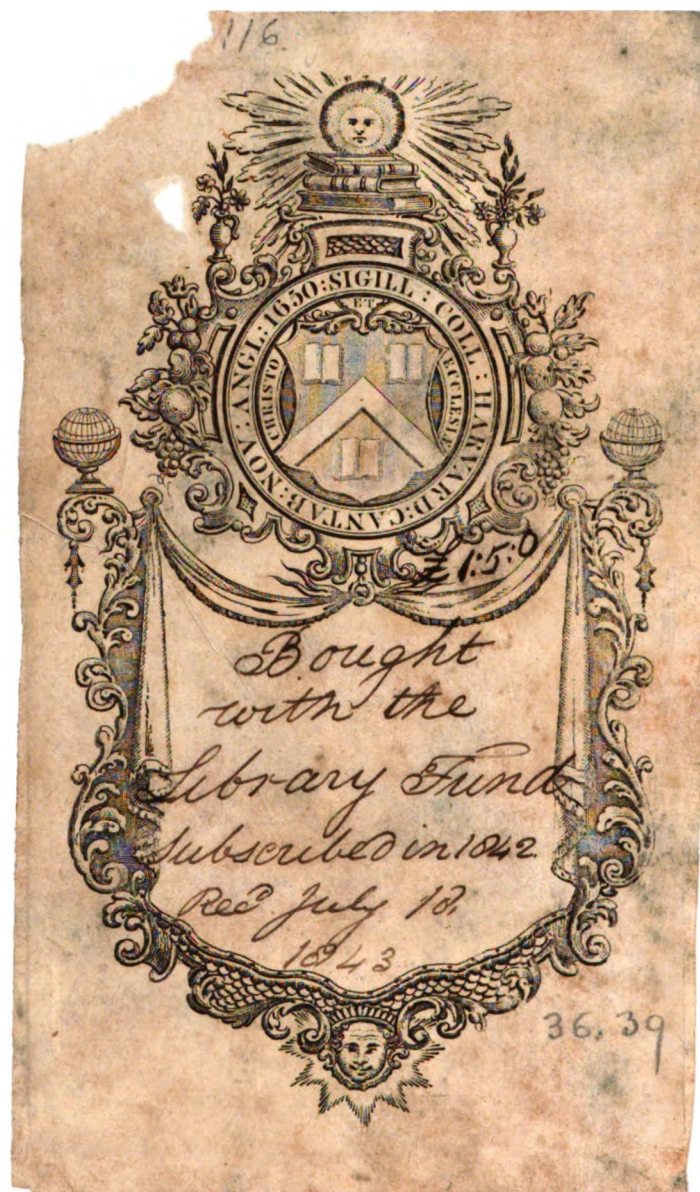 116.
SIGILL : COLL : HARVARD : CANTAB : NOV : ANGL : 1650 :
CHRISTO ET ECCLESIÆ
£1:5:0
Bought
with the
Library Fund
Subscribed in 1842.
Recd July 18,
1843.
36.39